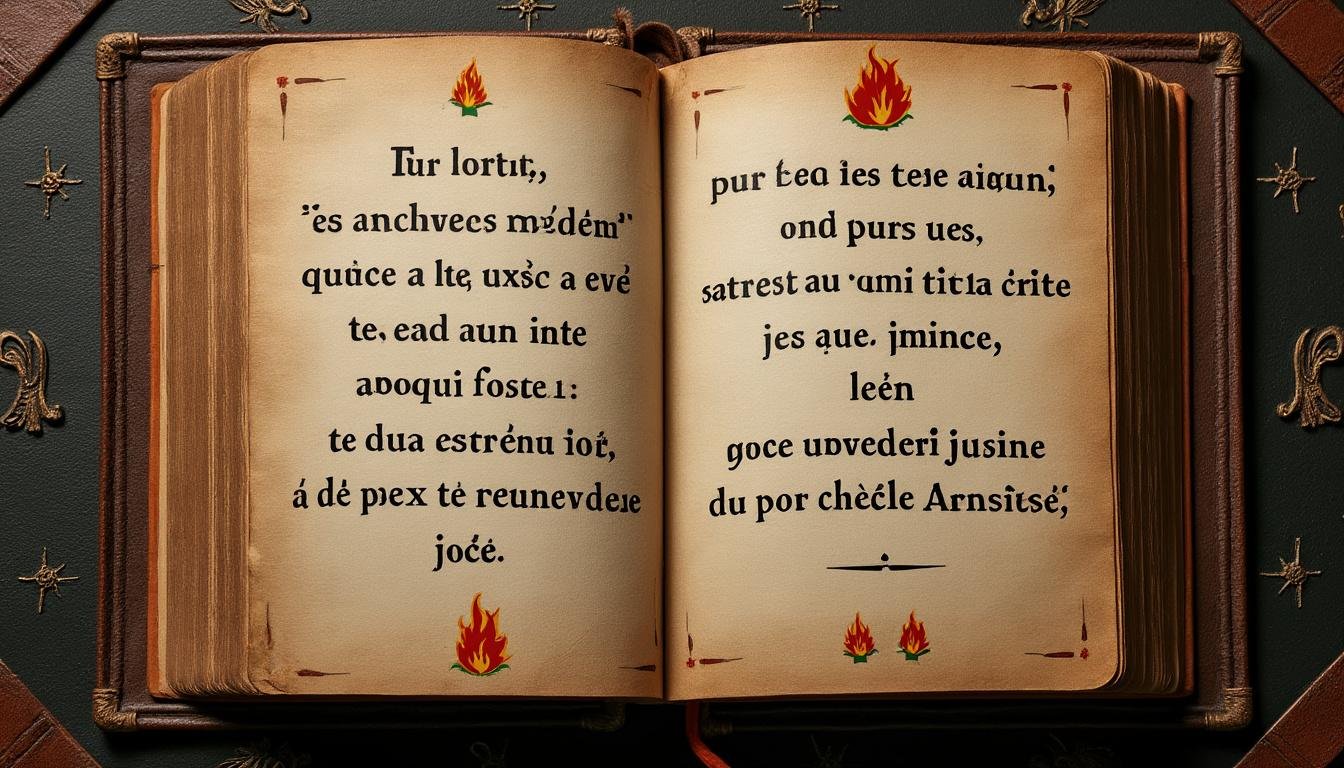 Tur lortit,,
"es anchvecs médém"
quáce a lte, uxsc a evé
te, ead aun inte
apoqui foste1:
te dua estrénu iot,
á dé pıex té reunevdeıe
joćé.
pur tea ies teıe aiqun;
ond purs ues,
satrest au 'ami titla ćrite
jes que. jmince,
leén
goce upvederi jusine
du por chèćle Arnsîtsé;